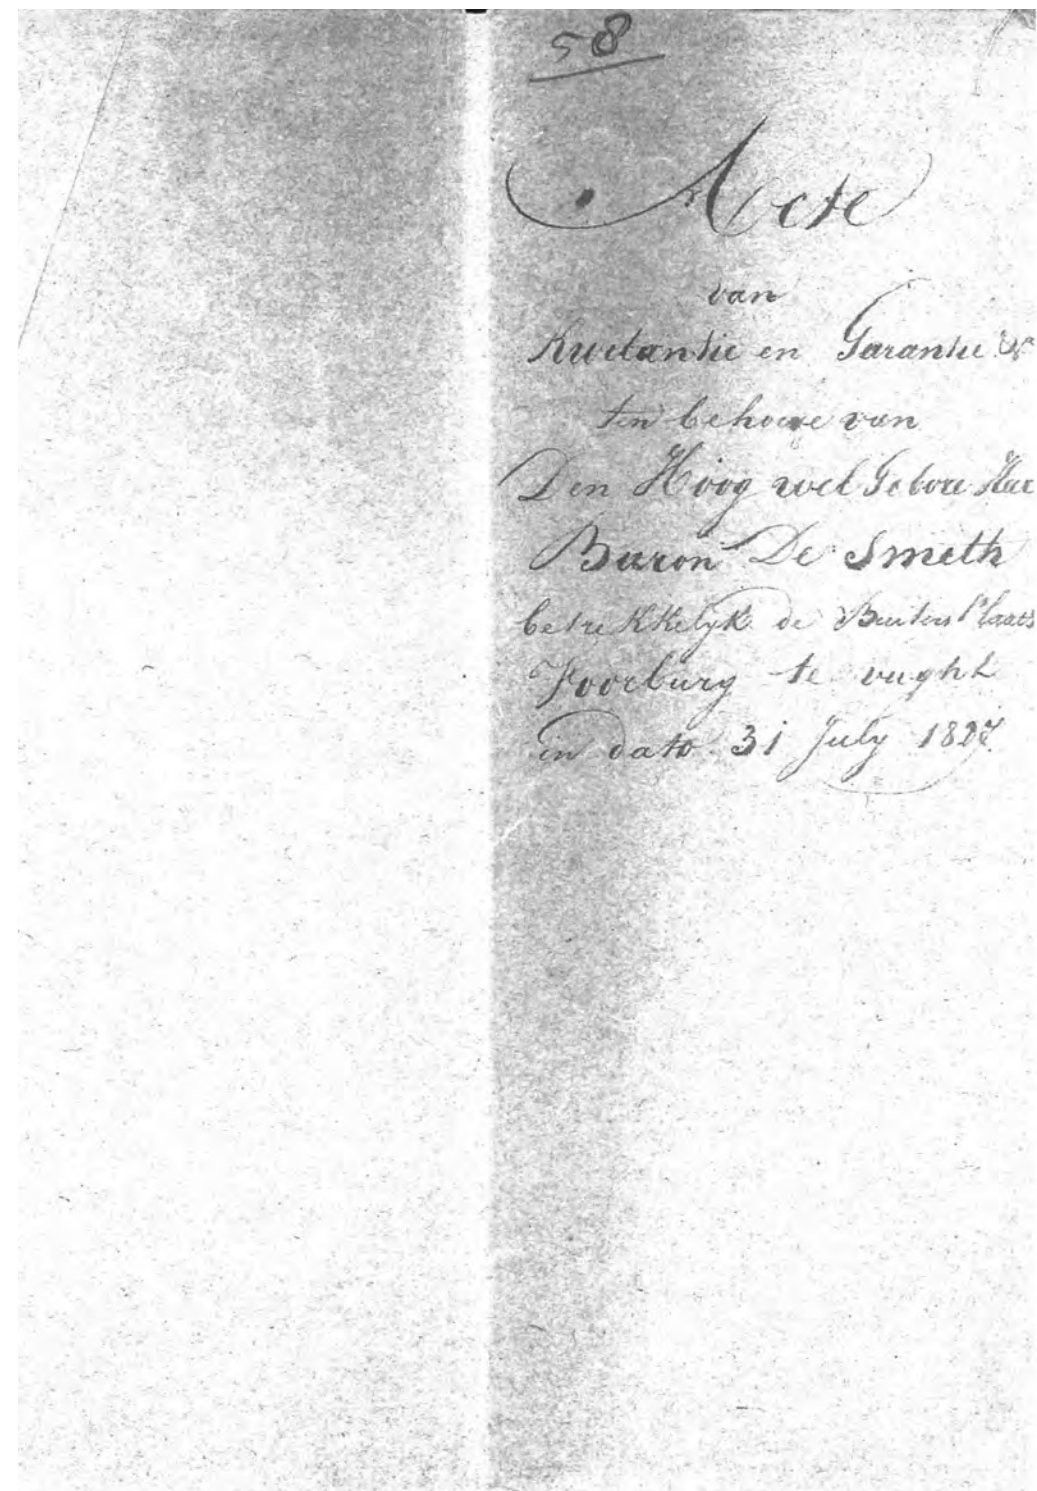 58
Acte
van
Kwetantie en Garantie &
ten behoeve van
Den Hoog wel Gebore Heer
Baron De Smeth
betrekkelyk de Buiten Plaats
Voorburg te vught
in dato 31 July 1827.